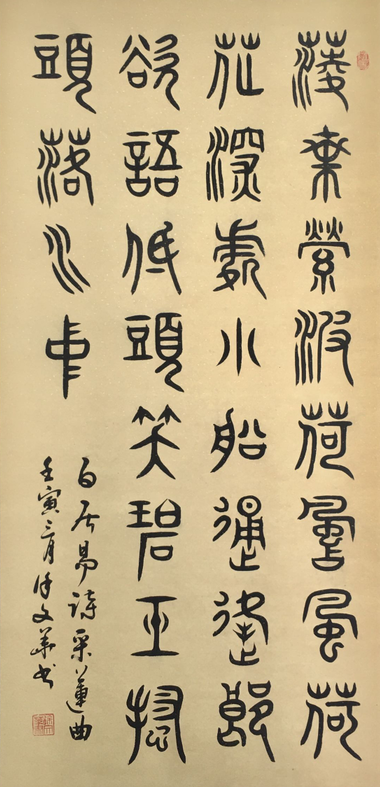 菱葉縈波荷颭風荷
花深處小船通逢郎
欲語低頭笑碧玉搔
頭落水中
白居易詩采蓮曲
壬寅三月文華书